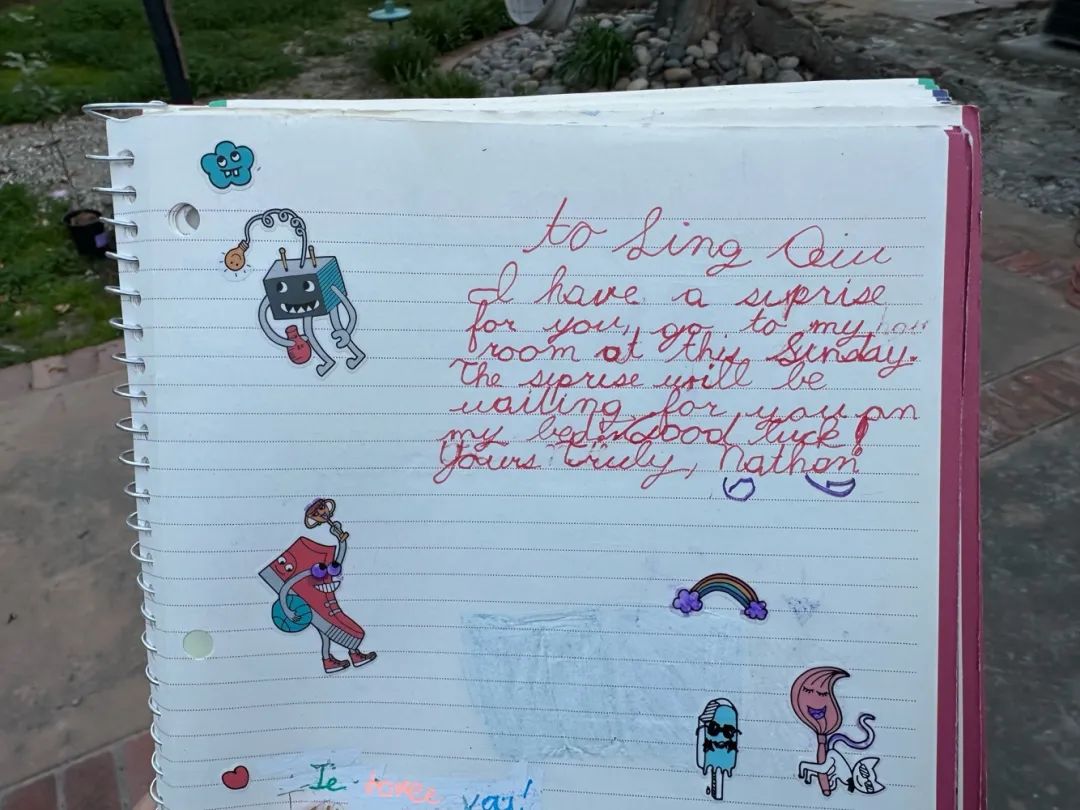 to Ling Qiu
I have a suprise
for you, go to my
room at this Sunday.
The suprise will be
waiting for you on
my bed. Good luck!
Yours Truly, Nathan
Je